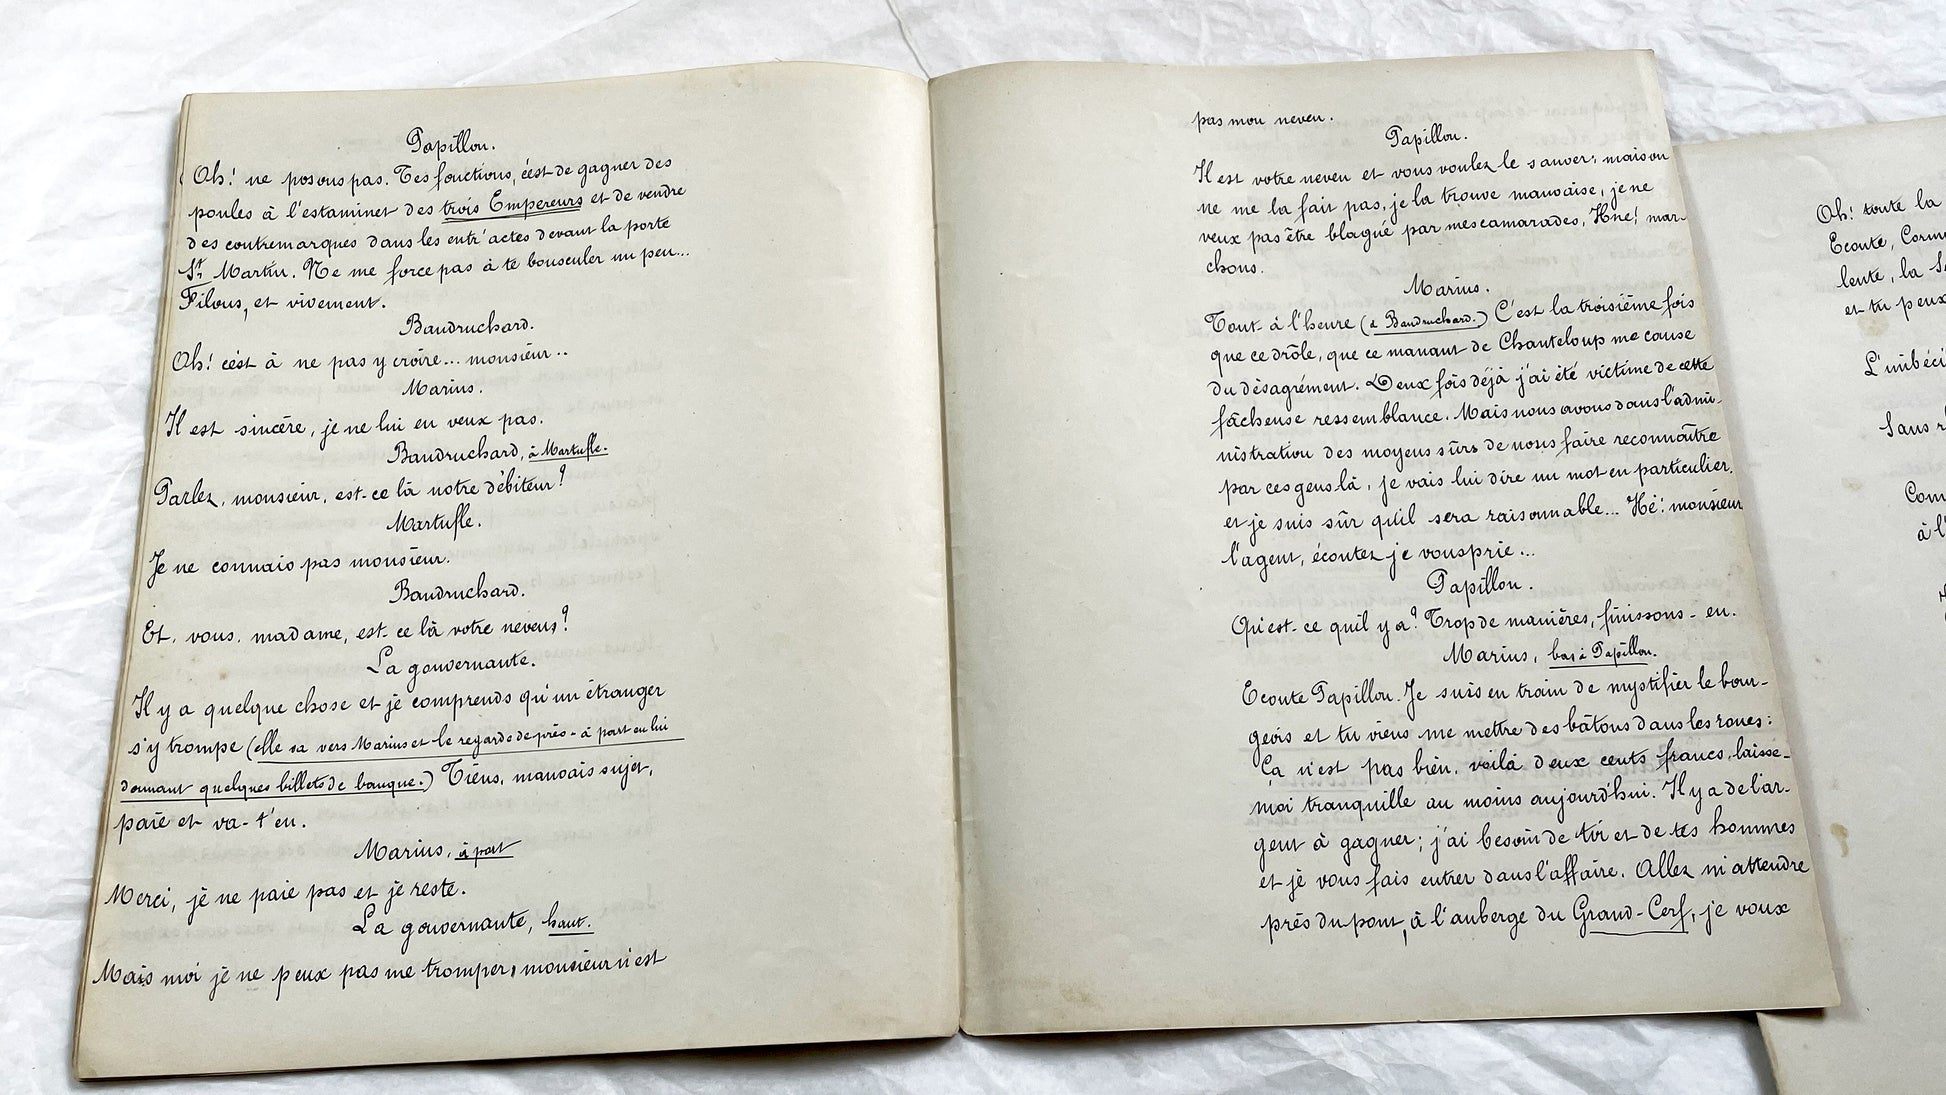 Papillon.
Oh! ne posons pas. Tes fonctions, c'est de gagner des
poules à l'estaminet des trois Empereurs et de vendre
des contremarques dans les entr'actes devant la porte
St Martin. Ne me force pas à te bousculer un peu...
Filons, et vivement.
Baudruchard.
Oh! c'est à ne pas y croire... monsieur..
Marius.
Il est sincère, je ne lui en veux pas.
Baudruchard, à Martufle.
Parlez, monsieur, est-ce là notre débiteur?
Martufle.
Je ne connais pas monsieur.
Baudruchard.
Et, vous, madame, est-ce là votre neveu?
La gouvernante.
Il y a quelque chose et je comprends qu'un étranger
s'y trompe (elle va vers Marius et le regarde de près - à part en lui
donnant quelques billets de banque.) Tiens, mauvais sujet,
paie et va-t'en.
Marius, à part
Merci, je ne paie pas et je reste.
La gouvernante, haut.
Mais moi je ne peux pas me tromper, monsieur n'est
pas mon neveu.
Papillon.
Il est votre neveu et vous voulez le sauver; mais on
ne me la fait pas, je la trouve mauvaise, je ne
veux pas être blagué par mes camarades, Hne! mar-
chons.
Marius.
Tout à l'heure (à Baudruchard.) C'est la troisième fois
que ce drôle, que ce manant de Chanteloup me cause
du désagrément. Deux fois déjà j'ai été victime de cette
fâcheuse ressemblance. Mais nous avons dans l'admi-
nistration des moyens sûrs de nous faire reconnaître
par ces gens là, je vais lui dire un mot en particulier,
et je suis sûr qu'il sera raisonnable... Hé! monsieur
l'agent, écoutez je vous prie...
Papillon.
Qu'est-ce qu'il y a? Trop de manières, finissons-en.
Marius, bas à Papillon.
Ecoute Papillon. Je suis en train de mystifier le bour-
geois et tu viens me mettre des bâtons dans les roues:
Ça n'est pas bien, voilà deux cents francs, laisse-
moi tranquille au moins aujourd'hui. Il y a de l'ar-
gent à gagner; j'ai besoin de toi et de tes hommes
et je vous fais entrer dans l'affaire. Allez m'attendre
près du pont, à l'auberge du Grand-Cerf, je voux
Oh! toute la
Ecoute,
lente, la
et tu peux
L'imbéci
Sans
Com
à l'